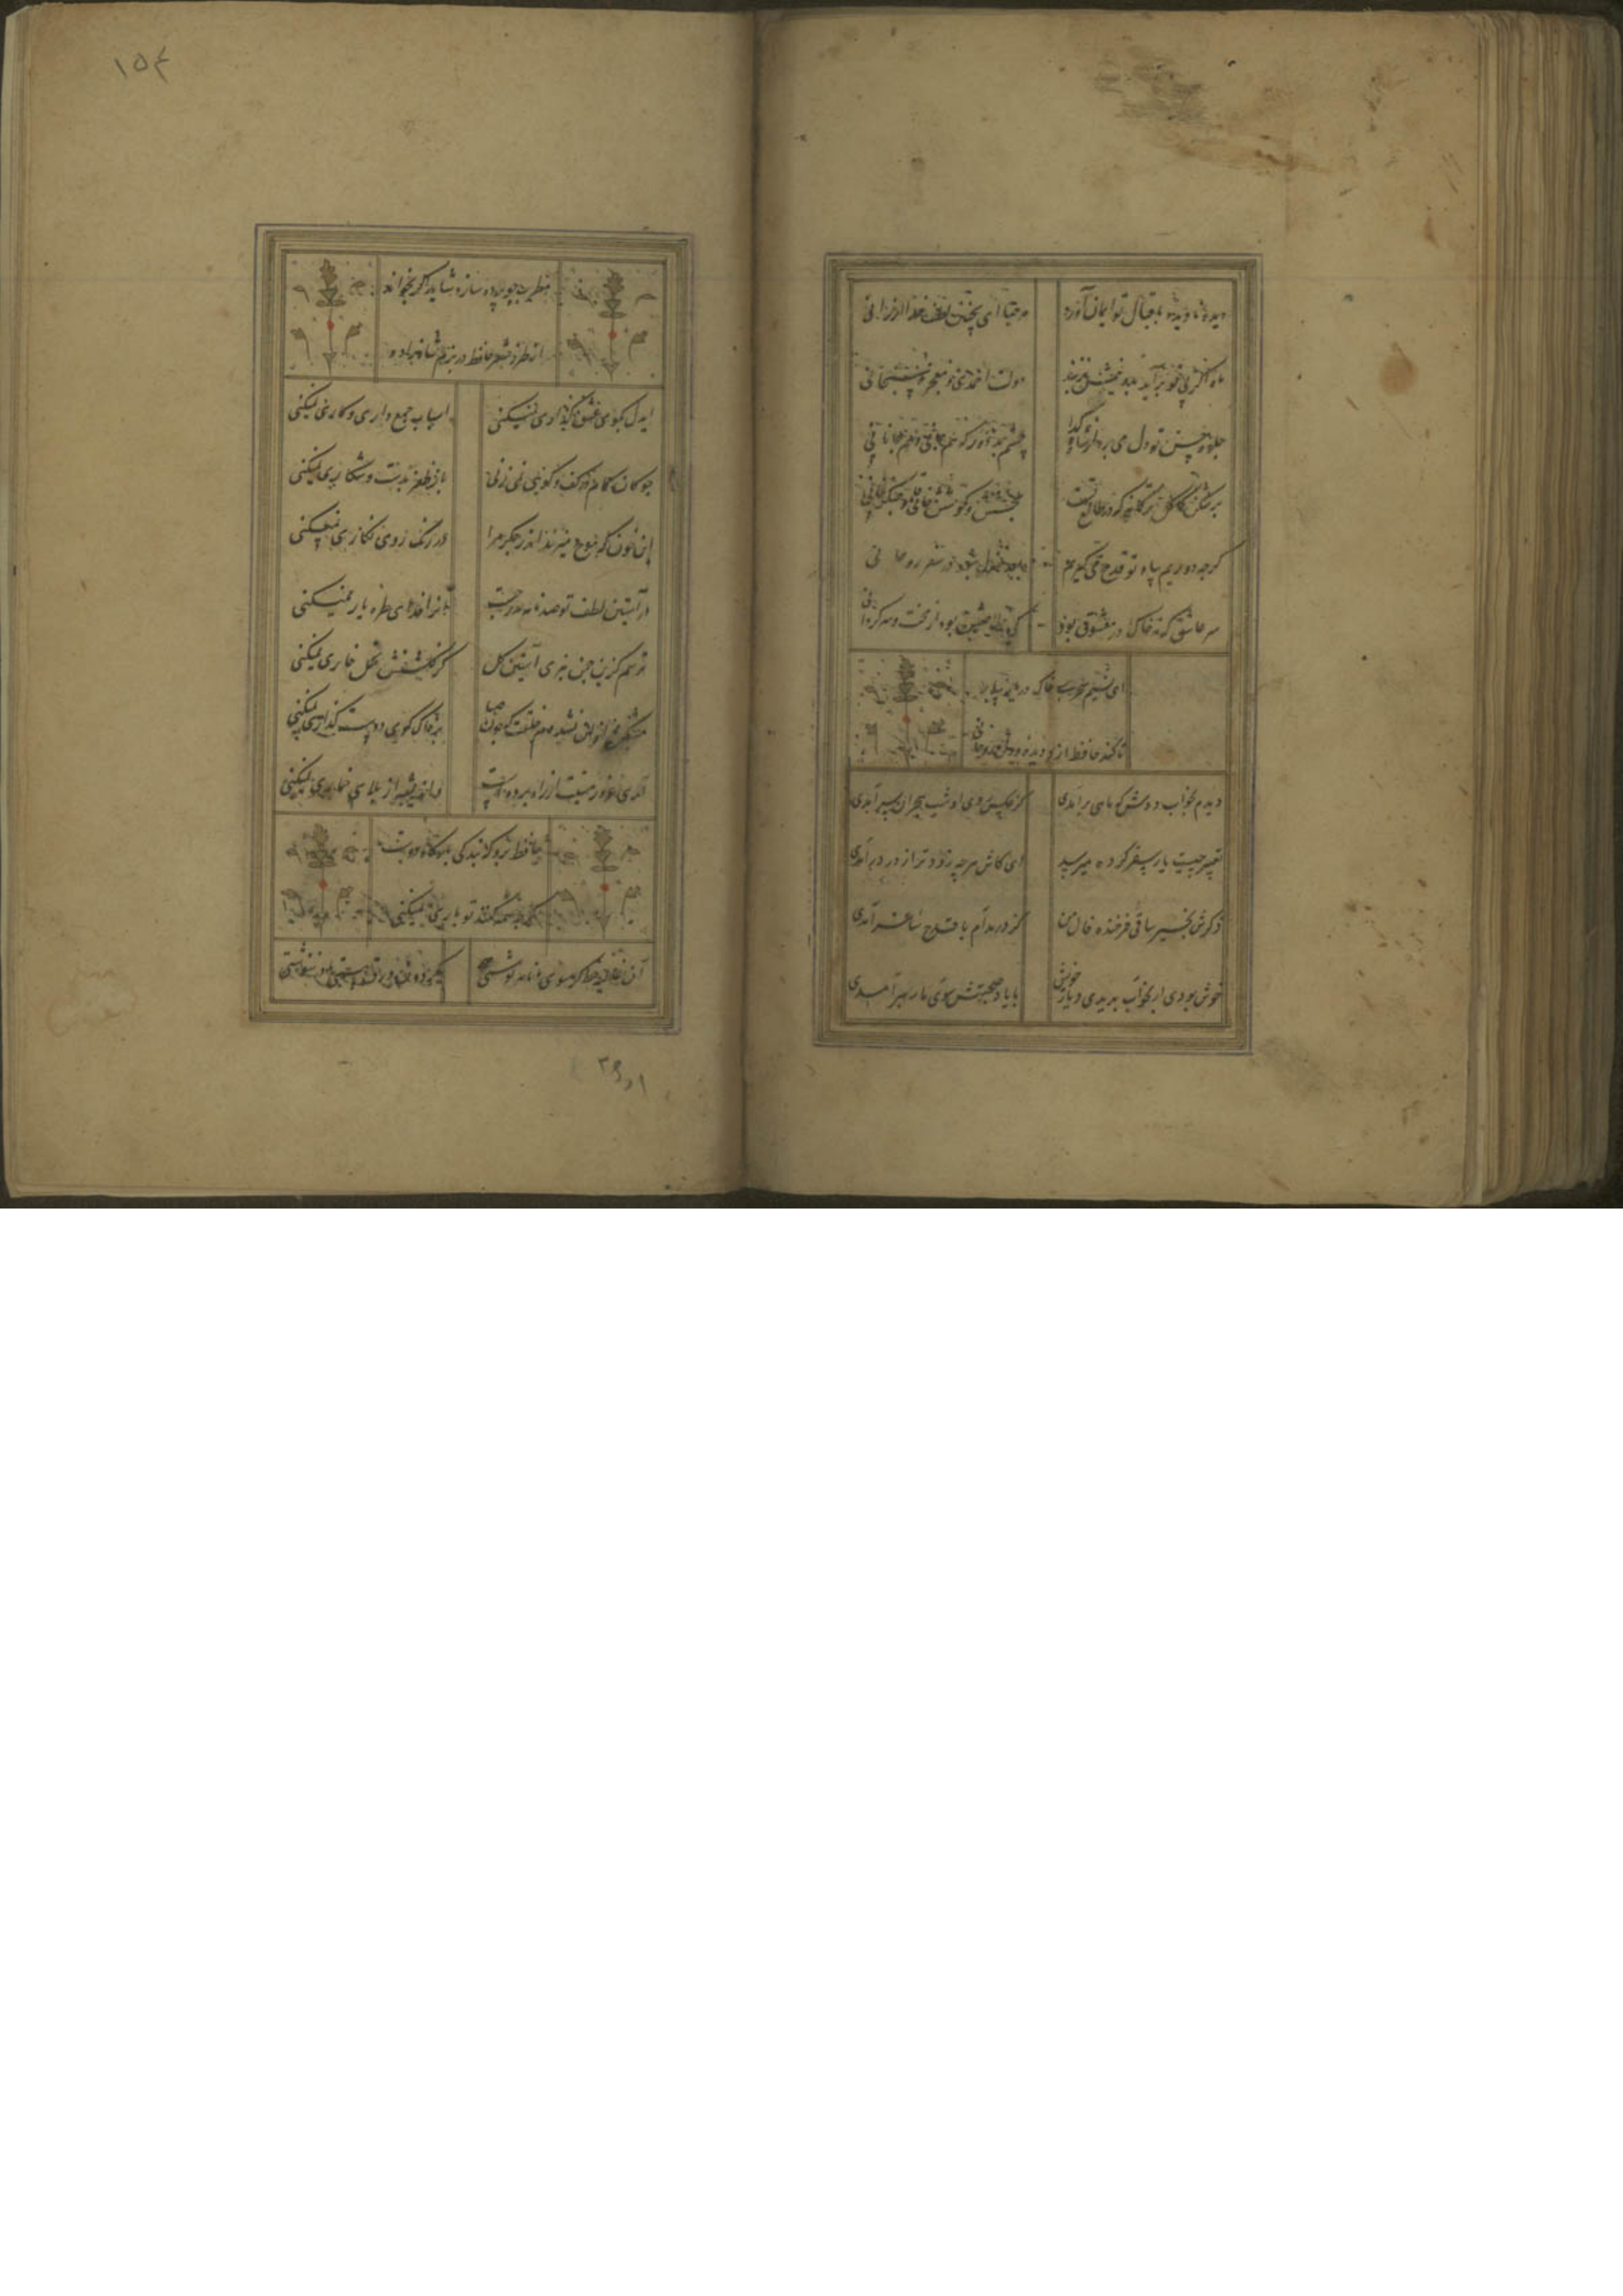 دیده نادیده باقبال تو ایمان آورد مرحبا ای بچنین لطف خدا ارزانی
ماه اگر بی تو برآید بدو نیمش بزنند دولت احمدی و معجزه سبحانی
جلوه حسن تو دل می برد از شاه و گدا چشم بد دور که هم جانی و هم جانانی
برشکن کاکل ترکانه که در طالع تست بخشش و کوشش خاقانی و چنگزخانی
گرچه دوریم بیاد تو قدح می گیریم بعد منزل نبود در سفر روحانی
سر عاشق که نه خاک در معشوق بود کی خلاصیش بود از محنت و سرگردانی
ای نسیم سحری خاک در یار بیار
تا کند حافظ ازو دیده و دل نورانی
دیدم بخواب دوش که ماهی برآمدی کز عکس روی او شب هجران سر آمدی
تعبیر چیست یار سفر کرده میرسد ای کاش هر چه زودتر از در درآمدی
ذکرش بخیر ساقی فرخنده فال من کز در مدام با قدح و ساغر آمدی
خوش بودی ار بخواب بدیدی دیار خویش تا یاد صحبتش سوی ما رهبر آمدی
۱۵۴
مطرب چو پرده سازد شاید اگر بخواند
از طرز شعر حافظ در بزم شاهزاده
ایدل بکوی عشق گذاری نمیکنی اسباب جمع داری و کاری نمیکنی
چوکان کام در کف و کویی نمی زنی باز ظفر بدست و شکاری نمیکنی
این خون که موج میزند اندر جگر مرا در رنگ روی نگاری نمیکنی
در آستین لطف تو صد نافه مدرجست آنرا فدای طره یاری نمیکنی
ترسم کزین چمن نبری آستین گل کز گلشنش تحمل خاری نمیکنی
مشکین از آن نشد دم خلقت که چون صبا بر خاک کوی دوست گذاری نمیکنی
حافظ برو که بندگی بارگاه دوست
گر جمله میکنند تو باری نمیکنی
آن غالیه خط گر سوی ما نامه نوشتی گردون ورق هستی ما در ننوشتی